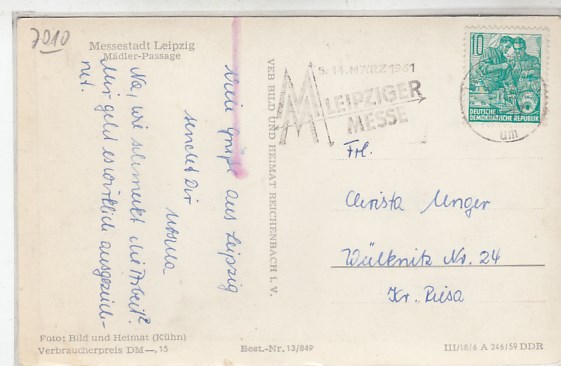 7010
Messestadt Leipzig
Mädler-Passage
Viele Grüße aus Leipzig
sendet Dir
Ursula
Na, wie schmeckt die Arbeit?
Mir geht es wirklich ausgezeich-
net.
Foto: Bild und Heimat (Kühn)
Verbraucherpreis DM —,15
VEB BILD UND HEIMAT REICHENBACH I. V.
Best.-Nr. 13/849
5.-14. MÄRZ 1961
MM LEIPZIGER
MESSE
10
DEUTSCHE
DEMOKRATISCHE REPUBLIK
um
Frl.
Christa Unger
Wülknitz Nr. 24
Kr. Riesa
III/18/6 A 246/59 DDR